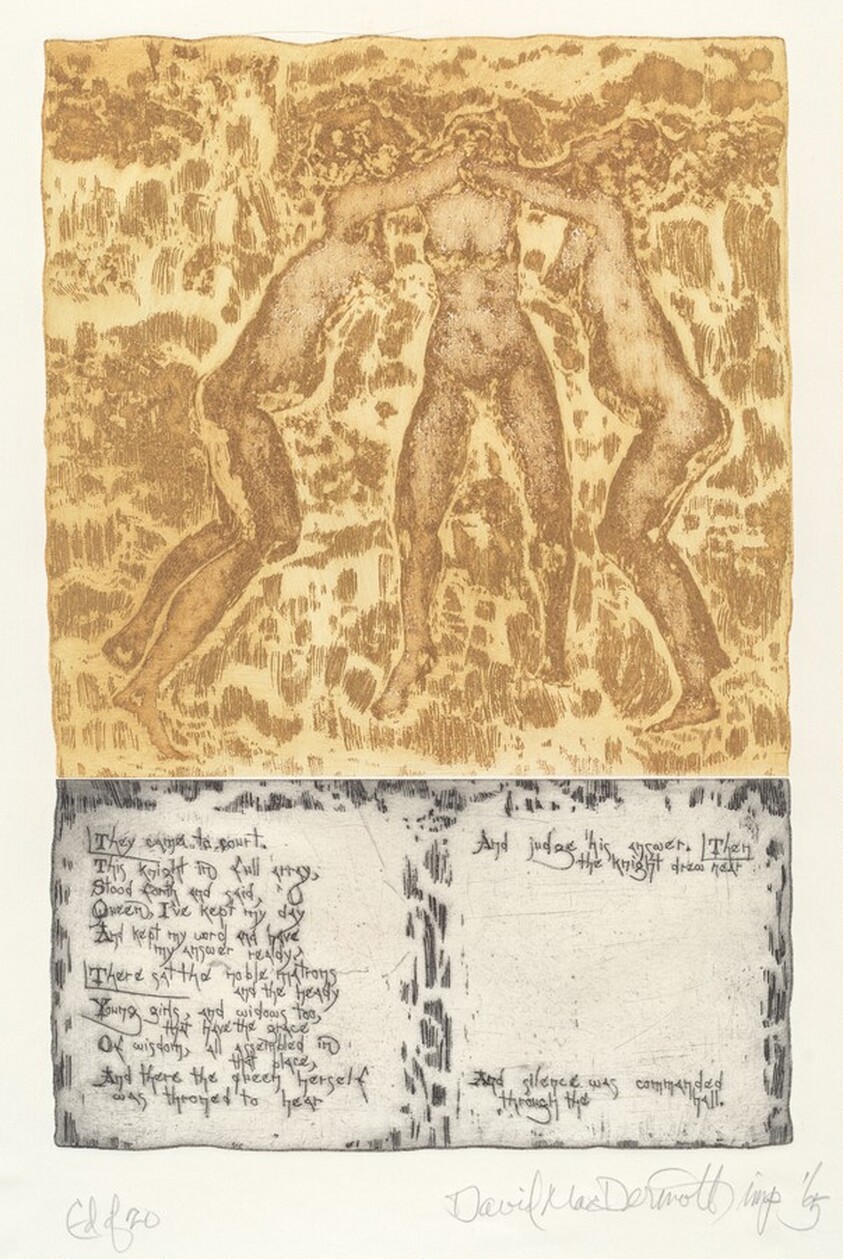 They came to court.
This knight in full array,
Stood forth and said, "O
Queen, I've kept my day
And kept my word and have
my answer ready,"
There sat the noble matrons
and the heady
Young girls, and widows too,
that have the grace
Of wisdom, all assembled in
that place,
And there the queen herself
was throned to hear
And judge his answer. Then
the knight drew near
And silence was commanded
through the hall.
Ed of 20
David MacDermott imp